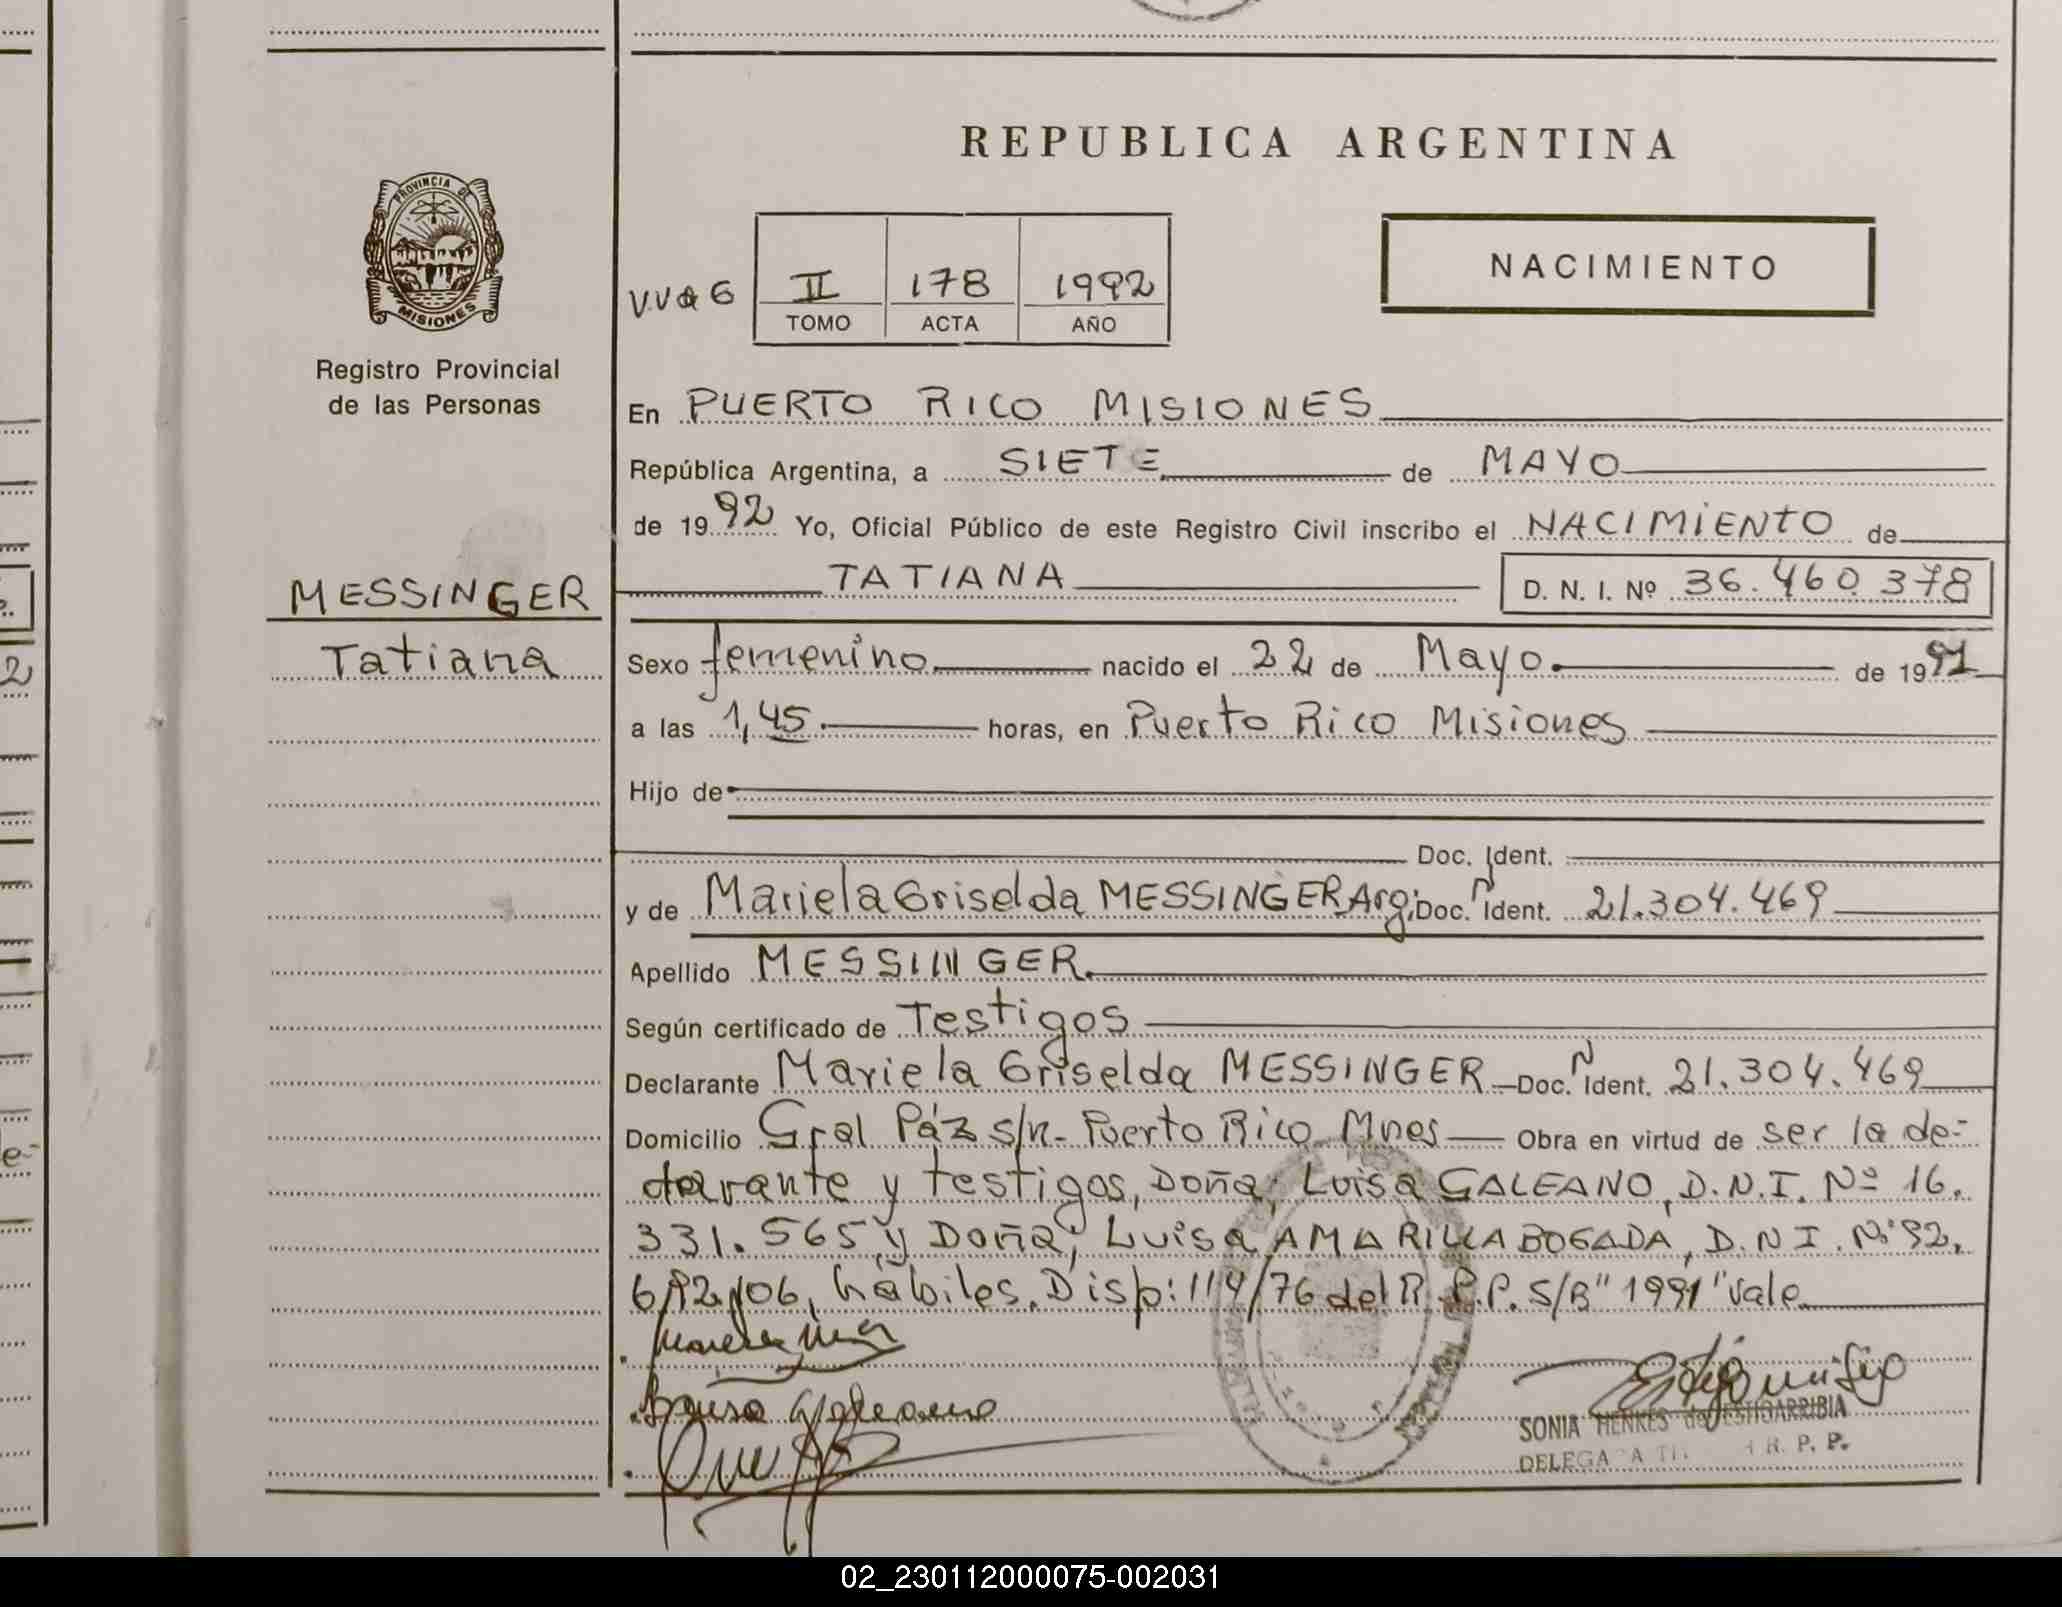 REPUBLICA ARGENTINA
PROVINCIA DE
MISIONES
Registro Provincial
de las Personas
MESSINGER
Tatiana
II 178 1992
TOMO ACTA AÑO
NACIMIENTO
En PUERTO RICO MISIONES
República Argentina, a SIETE de MAYO
de 1992 Yo, Oficial Público de este Registro Civil inscribo el NACIMIENTO de
TATIANA D. N. I. Nº 36.460.378
Sexo femenino nacido el 22 de Mayo de 1991
a las 1,45 horas, en Puerto Rico Misiones
Hijo de
Doc. Ident.
y de Mariela Griselda MESSINGER, Arg; Doc. N Ident. 21.304.469
Apellido MESSINGER
Según certificado de Testigos
Declarante Mariela Griselda MESSINGER Doc. N Ident. 21.304.469
Domicilio Gral Páz s/n- Puerto Rico Mnes Obra en virtud de ser la de-
clarante y testigos, Doña; Luisa GALEANO, D.N.I. Nº 16.
331.565 y Doña; Luisa AMARILLA BOGADA, D.N.I. Nº 92.
hábiles. Disp: 114/76 del R.P.P. S/R "1991" Vale
SONIA HENKES de ESTIGARRIBIA
R. P. P.
02_230112000075-002031